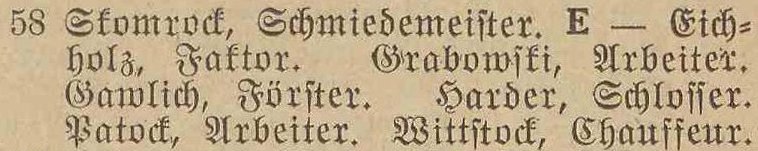 58 Skomrock, Schmiedemeister. E — Eich-
holz, Faktor. Grabowski, Arbeiter.
Gawlich, Förster. Harder, Schlosser.
Patock, Arbeiter. Wittstock, Chauffeur.